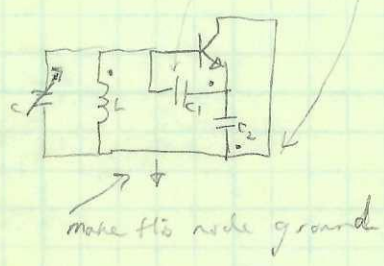 C
L
C1
C2
make this node ground